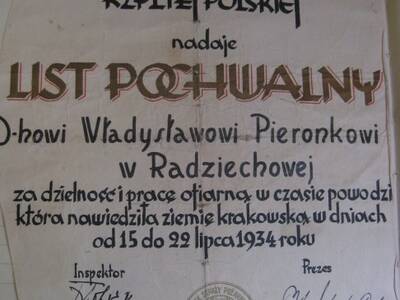 RZPLTEJ POLSKIEJ
nadaje
LIST POCHWALNY
D-howi Władysławowi Pieronkowi
w Radziechowej
za dzielność i pracę ofiarną w czasie powodzi
która nawiedziła ziemię krakowską w dniach
od 15 do 22 lipca 1934 roku
Inspektor Prezes